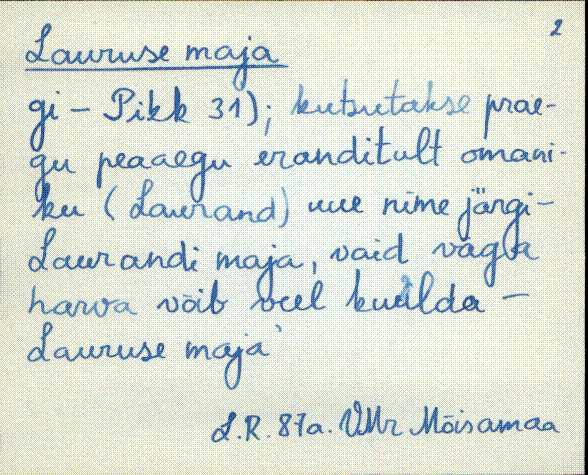 2
Lauruse maja
gi - Pikk 31); kutsutakse prae-
gu peaaegu eranditult omani-
ku (Laurand) uue nime järgi -
Laurandi maja, vaid vägla
harva võib veel kuulda -
Lauruse maja'
L.R. 87a. VMr Mõisamaa